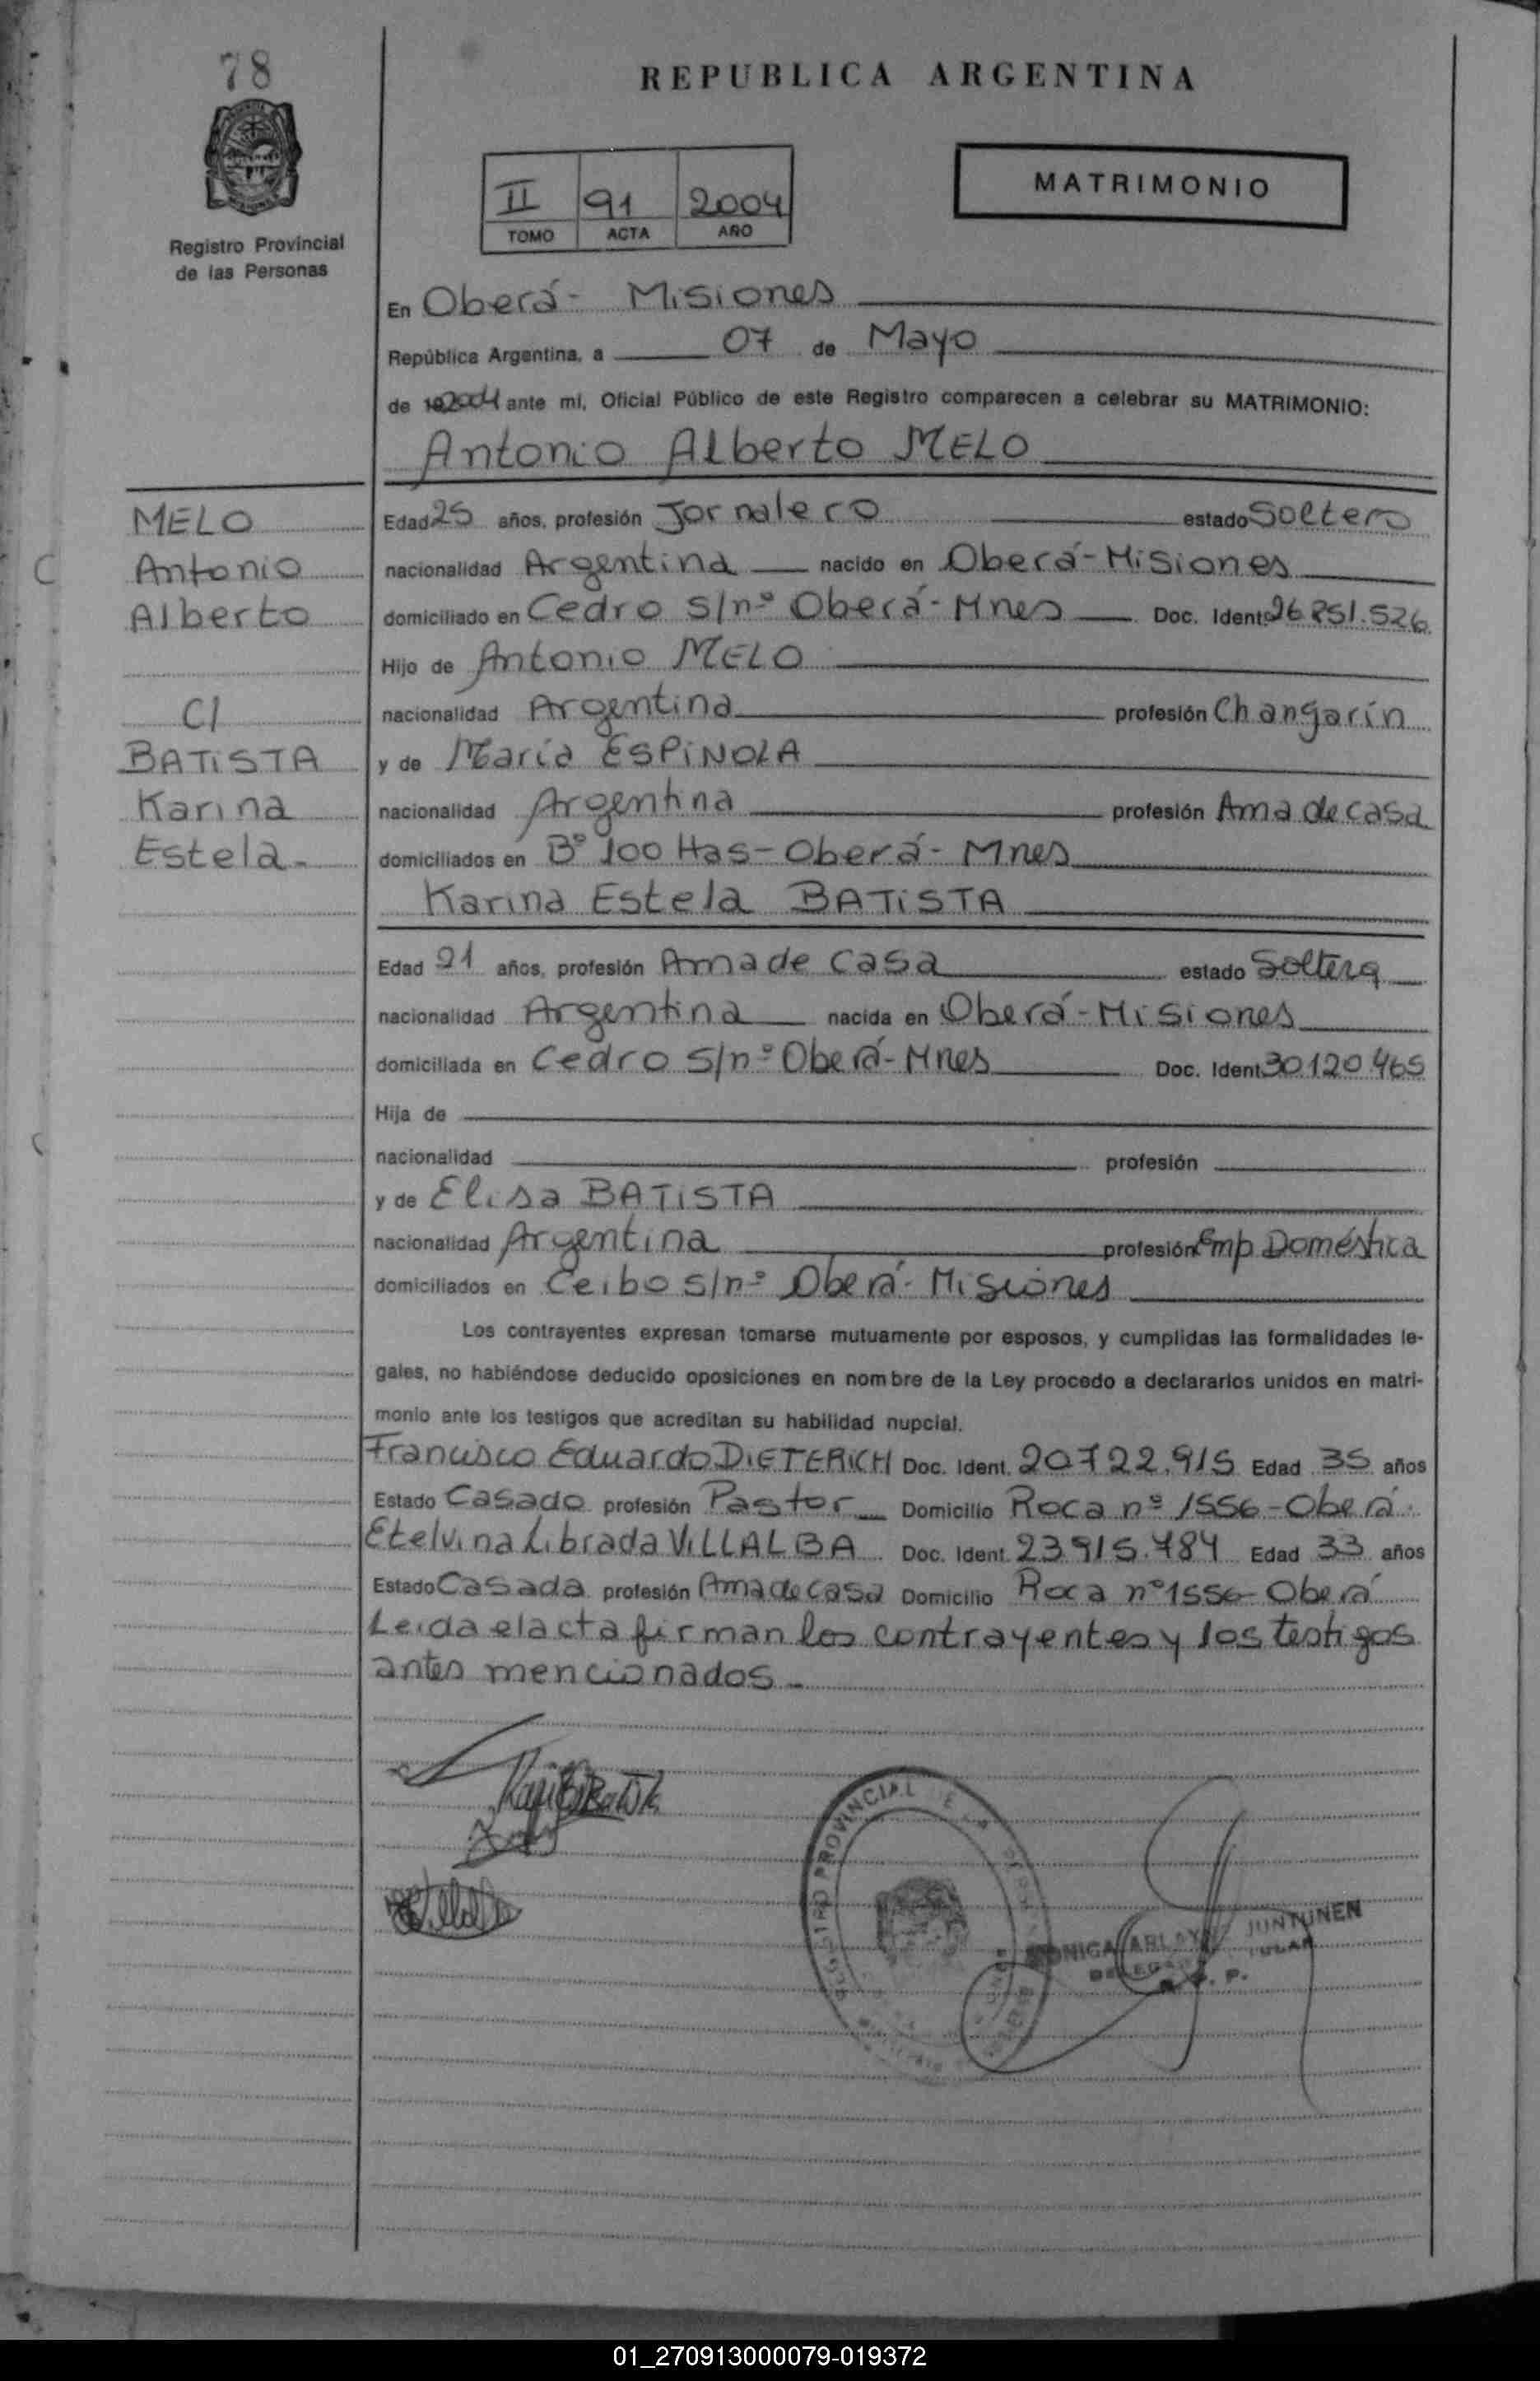 78
REPUBLICA ARGENTINA
MATRIMONIO
II 91 2004
TOMO ACTA AÑO
Registro Provincial
de las Personas
En Oberá - Misiones
República Argentina, a 07 de Mayo
de 2004 ante mí, Oficial Público de este Registro comparecen a celebrar su MATRIMONIO:
Antonio Alberto MELO
MELO
Antonio
Alberto
C/
BATiSTA
Karina
Estela-
Edad 25 años, profesión Jornalero estado Soltero
nacionalidad Argentina nacido en Oberá-Misiones
domiciliado en Cedro S/nº Oberá-Mnes Doc. Ident. 26.851.526
Hijo de Antonio MELO
nacionalidad Argentina profesión Changarín
y de María ESPiNOLA
nacionalidad Argentina profesión Ama de casa
domiciliados en Bº 100 Has-Oberá-Mnes
Karina Estela BATiSTA
Edad 21 años, profesión Ama de casa estado Soltera
nacionalidad Argentina nacida en Oberá-Misiones
domiciliada en Cedro S/nº Oberá-Mnes Doc. Ident. 30.120.465
Hija de
nacionalidad profesión
y de Elisa BATiSTA
nacionalidad Argentina profesión Emp Doméstica
domiciliados en Ceibo S/nº Oberá-Misiones
Los contrayentes expresan tomarse mutuamente por esposos, y cumplidas las formalidades le-
gales, no habiéndose deducido oposiciones en nombre de la Ley procedo a declararlos unidos en matri-
monio ante los testigos que acreditan su habilidad nupcial.
Francisco Eduardo DiETERiCH Doc. Ident. 20.722.915 Edad 35 años
Estado Casado profesión Pastor Domicilio Roca nº 1556-Oberá
Etelvina Librada ViLLALBA Doc. Ident. 23.915.484 Edad 33 años
Estado Casada profesión Ama de casa Domicilio Roca nº 1556-Oberá
Leida el acta firman los contrayentes y los testigos
antes mencionados-
PROVINCIAL
JUNTUNEN
01_270913000079-019372